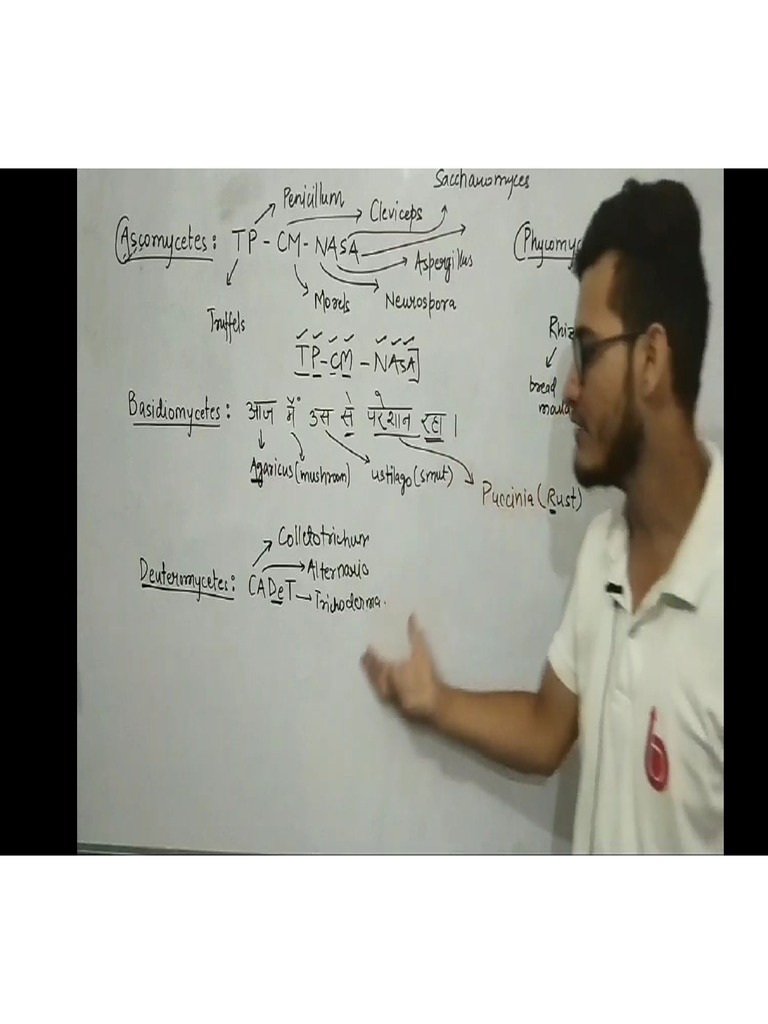 Saccharomyces
Penicillum
Claviceps
Ascomycetes: TP - CM - NASA
Phycomyc
Aspergillus
Morels
Neurospora
Truffels
Rhiz
TP-CM-NASA]
bread
mould
Basidiomycetes: आज में उस से परेशान रहा।
Agaricus(mushroom)
ustilago(smut)
Puccinia(Rust)
Colletotrichum
Deuteromycetes: CADeT
Alternaria
Trichoderma.